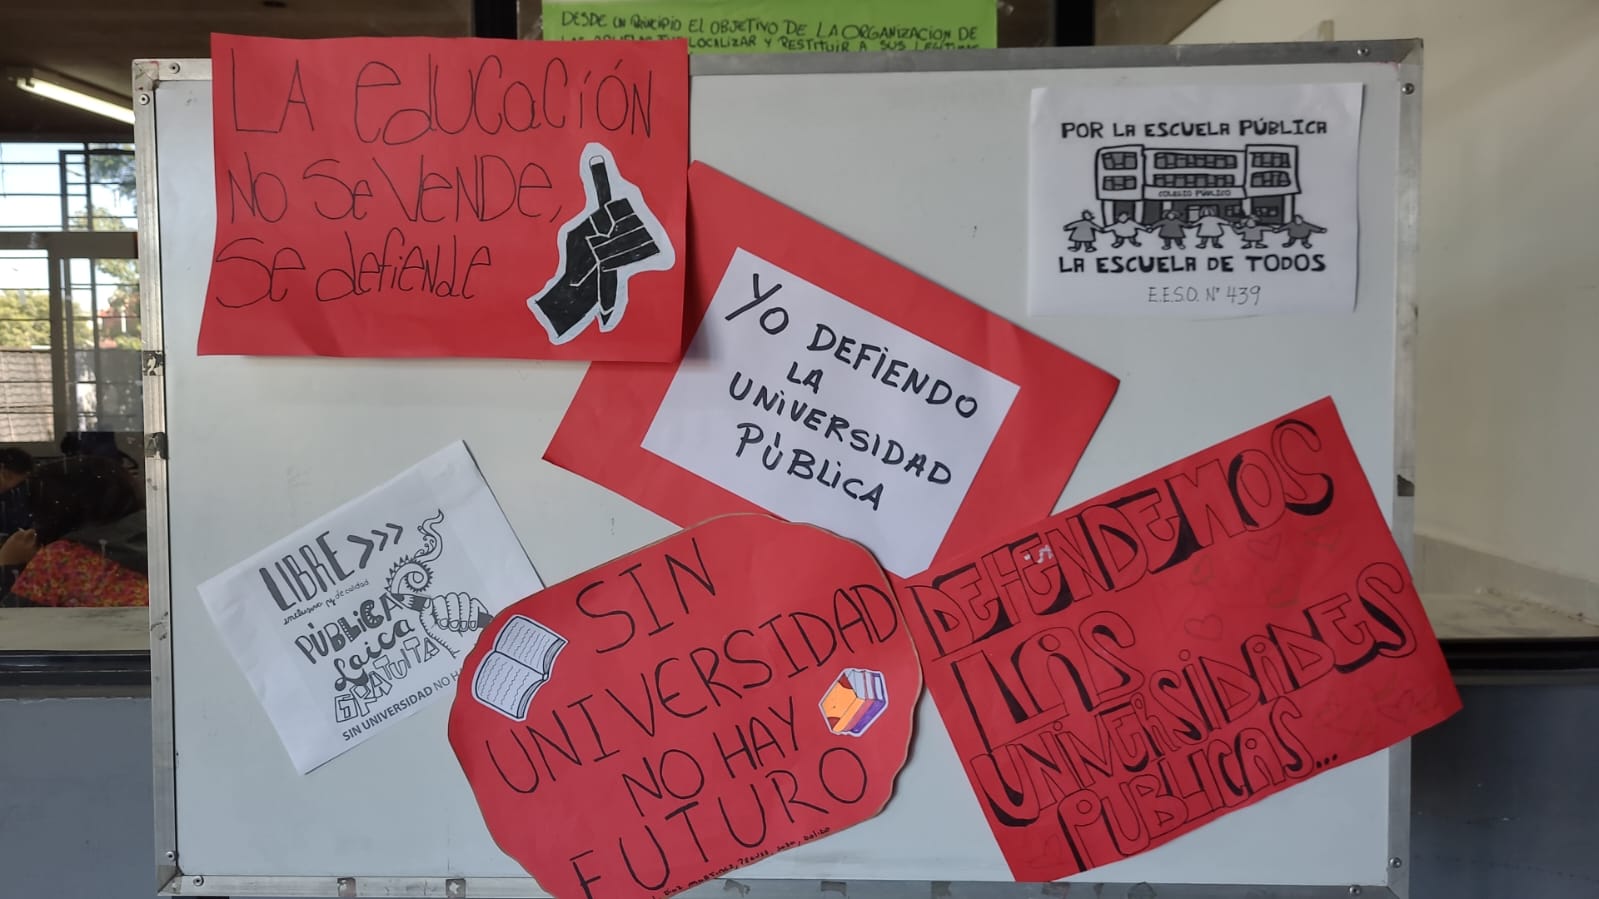 DESDE UN PRINCIPIO EL OBJETIVO DE LA ORGANIZACION DE
LOCALIZAR Y RESTITUIR A SUS
LA EDUCACIÓN
NO SE VENDE,
SE defiende
POR LA ESCUELA PÚBLICA
COLEGIO PÚBLICO
LA ESCUELA DE TODOS
E.E.S.O. N° 439
YO DEFIENDO
LA
UNIVERSIDAD
PÙBLICA
LIBRE>>>
inclusiva y de calidad
PÚBLICA
Laica
GRATUITA
SIN UNIVERSIDAD NO H
SIN
UNIVERSIDAD
NO HAY
FUTURO
DEFENDEMOS
LAS
UNIVERSIDADES
PUBLICAS...